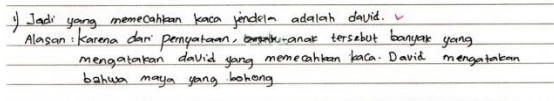 1) Jadi yang memecahkan kaca jendela adalah david.
Alasan : karena dari pernyataan, anak tersebut banyak yang
mengatakan david yang memecahkan kaca. David mengatakan
bahwa maya yang bohong